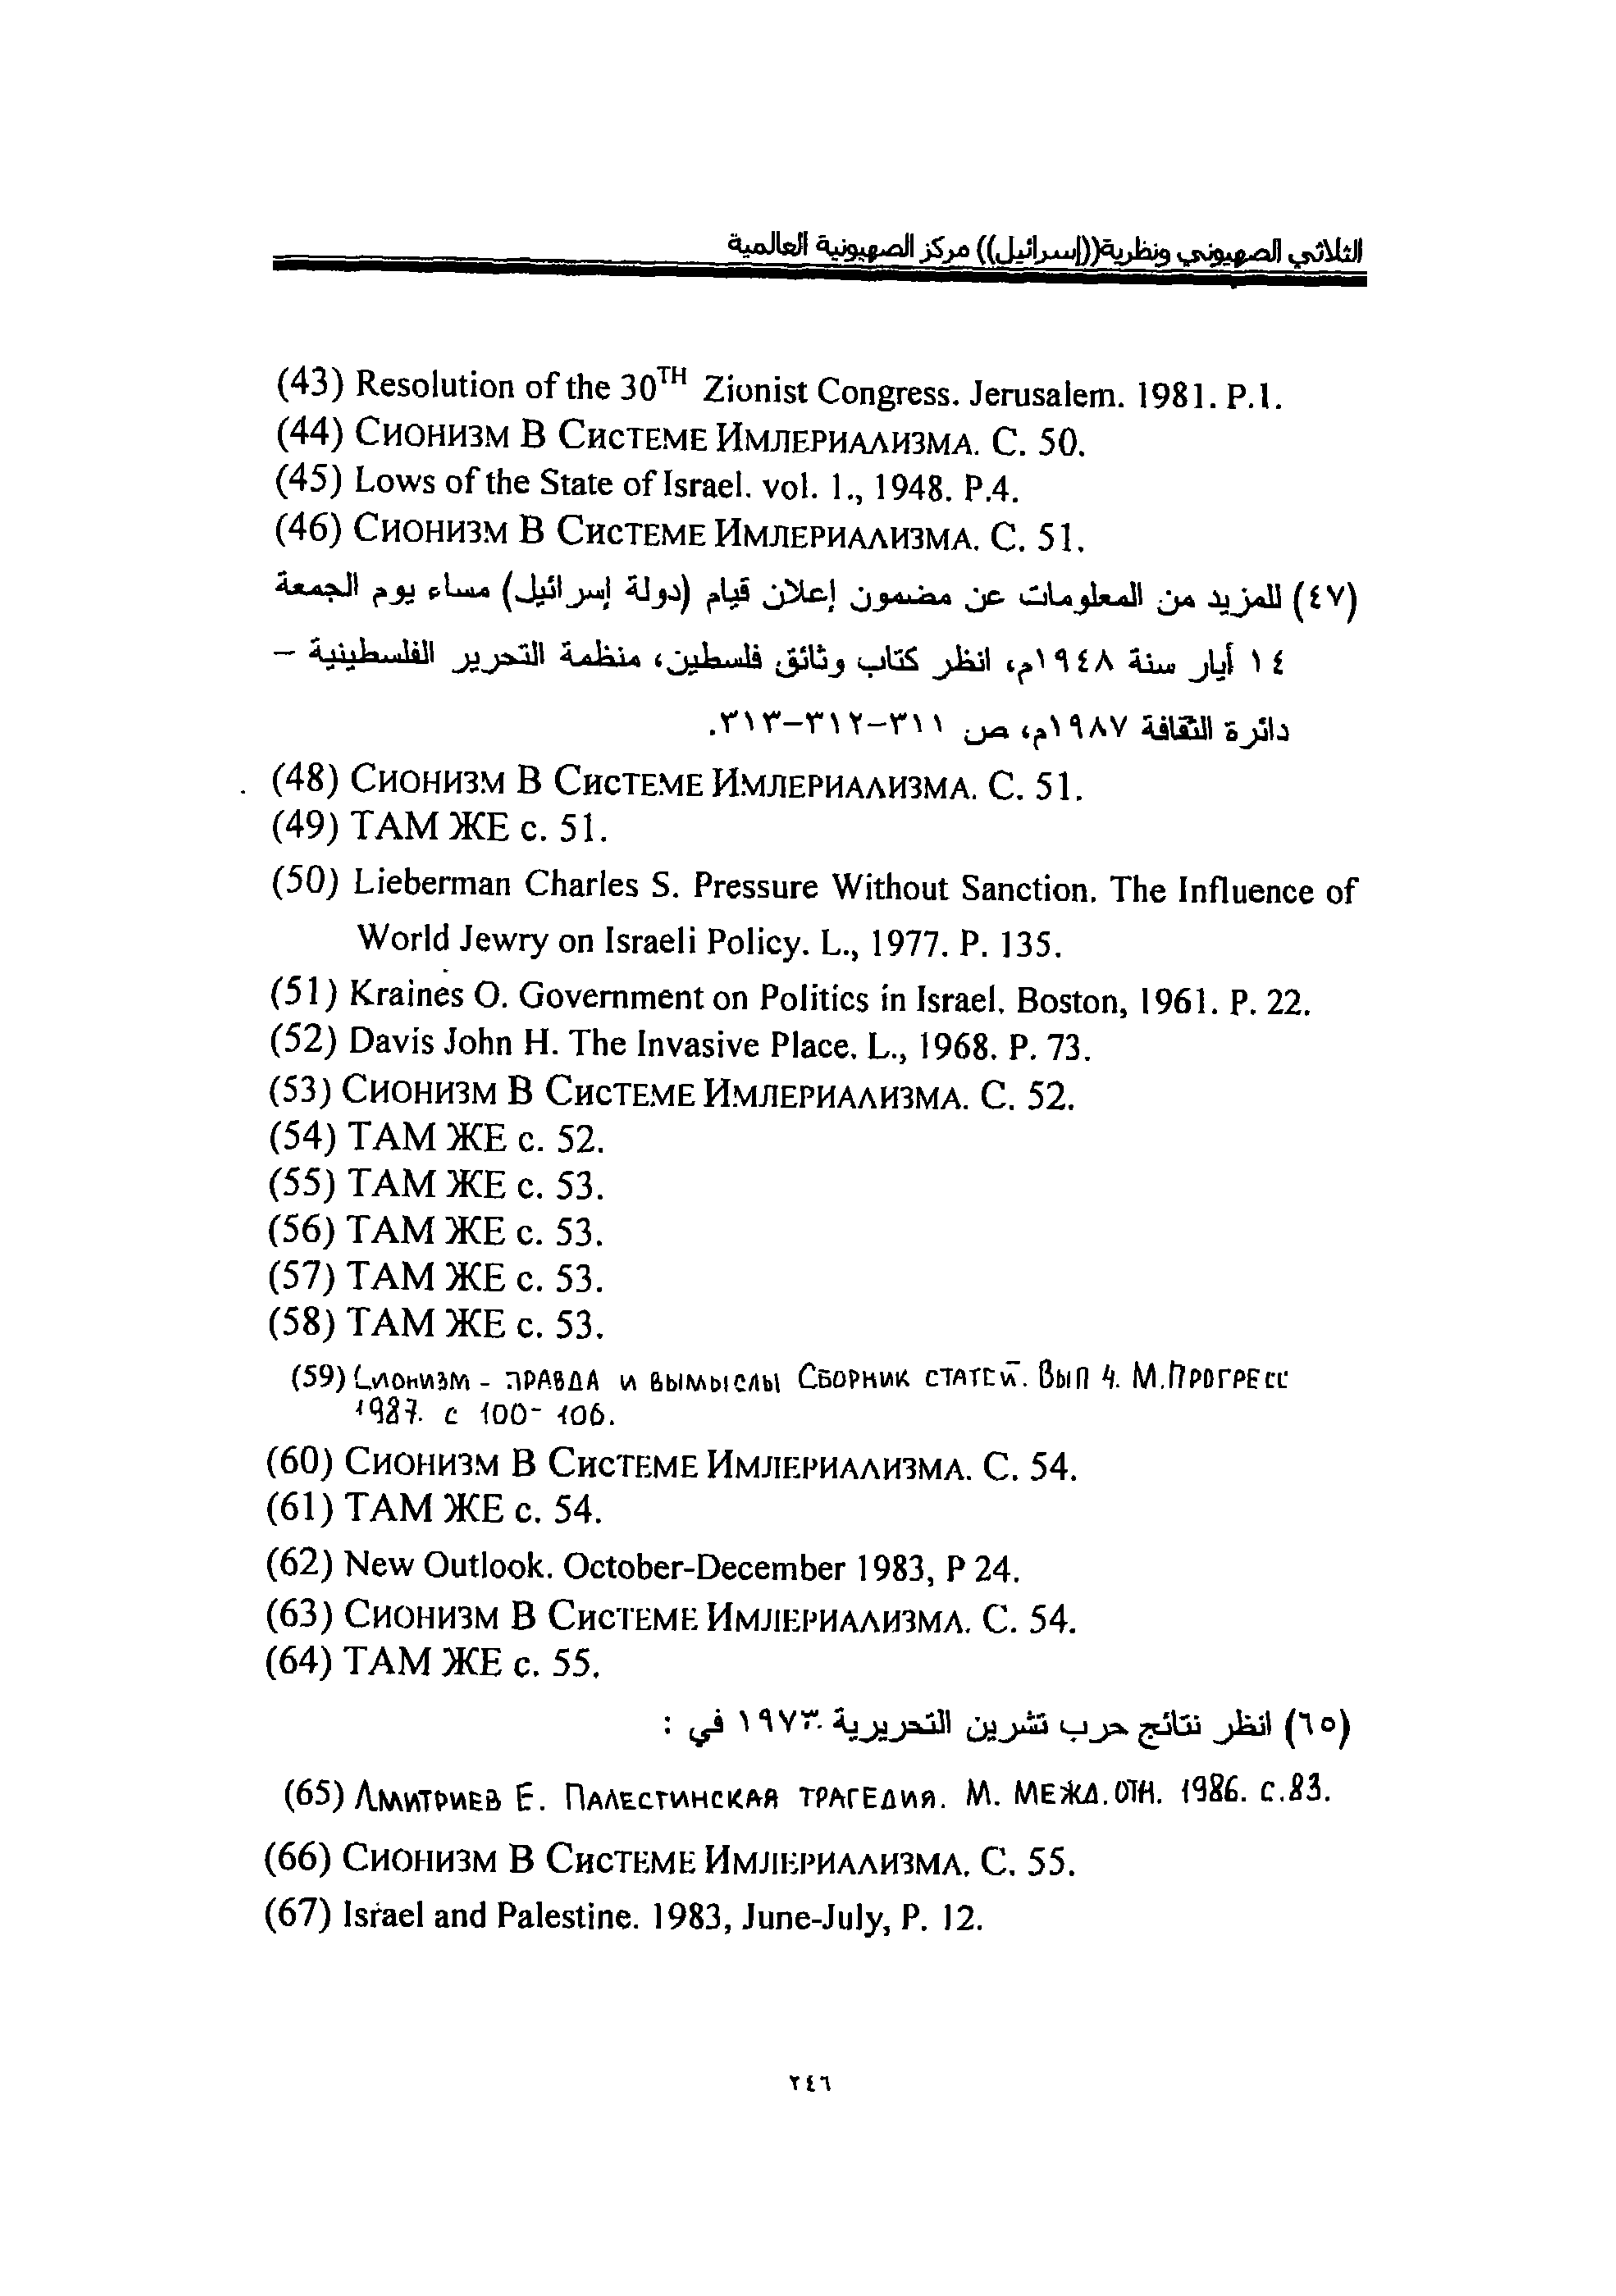 الثلاثي الصهيوني ونظرية((إسرائيل)) مركز الصهيونية العالمية
(43) Resolution of the 30TH Zionist Congress. Jerusalem. 1981. P.1.
(44) СИОНИЗМ В СИСТЕМЕ ИМЛЕРИАЛИЗМА. С. 50.
(45) Lows of the State of Israel. vol. 1., 1948. P.4.
(46) СИОНИЗМ В СИСТЕМЕ ИМЛЕРИАЛИЗМА. С. 51.
(٤٧) للمزيد من المعلومات عن مضمون إعلان قيام (دولة إسرائيل) مساء يوم الجمعة
١٤ أيار سنة ١٩٤٨م، انظر كتاب وثائق فلسطين، منظمة التحرير الفلسطينية –
دائرة الثقافة ١٩٨٧م، ص ٣١١-٣١٢-٣١٣.
(48) СИОНИЗМ В СИСТЕМЕ ИМЛЕРИАЛИЗМА. С. 51.
(49) ТАМ ЖЕ с. 51.
(50) Lieberman Charles S. Pressure Without Sanction. The Influence of
World Jewry on Israeli Policy. L., 1977. P. 135.
(51) Kraines O. Government on Politics in Israel. Boston, 1961. P. 22.
(52) Davis John H. The Invasive Place. L., 1968. P. 73.
(53) СИОНИЗМ В СИСТЕМЕ ИМЛЕРИАЛИЗМА. С. 52.
(54) ТАМ ЖЕ с. 52.
(55) ТАМ ЖЕ с. 53.
(56) ТАМ ЖЕ с. 53.
(57) ТАМ ЖЕ с. 53.
(58) ТАМ ЖЕ с. 53.
(59) Сионизм - ПРАВДА И ВЫМЫСЛЫ СБОРНИК СТАТЕЙ. Вып 4. М.ПРОГРЕСС
1987. с 100- 106.
(60) СИОНИЗМ В СИСТЕМЕ ИМЛЕРИАЛИЗМА. С. 54.
(61) ТАМ ЖЕ с. 54.
(62) New Outlook. October-December 1983, P 24.
(63) СИОНИЗМ В СИСТЕМЕ ИМЛЕРИАЛИЗМА. С. 54.
(64) ТАМ ЖЕ с. 55.
(٦٥) انظر نتائج حرب تشرين التحريرية ١٩٧٣ في :
(65) ДМИТРИЕВ Е. ПАЛЕСТИНСКАЯ ТРАГЕДИЯ. М. МЕЖД.ОТН. 1986. с.83.
(66) СИОНИЗМ В СИСТЕМЕ ИМЛЕРИАЛИЗМА. С. 55.
(67) Israel and Palestine. 1983, June-July, P. 12.
٢٤٦